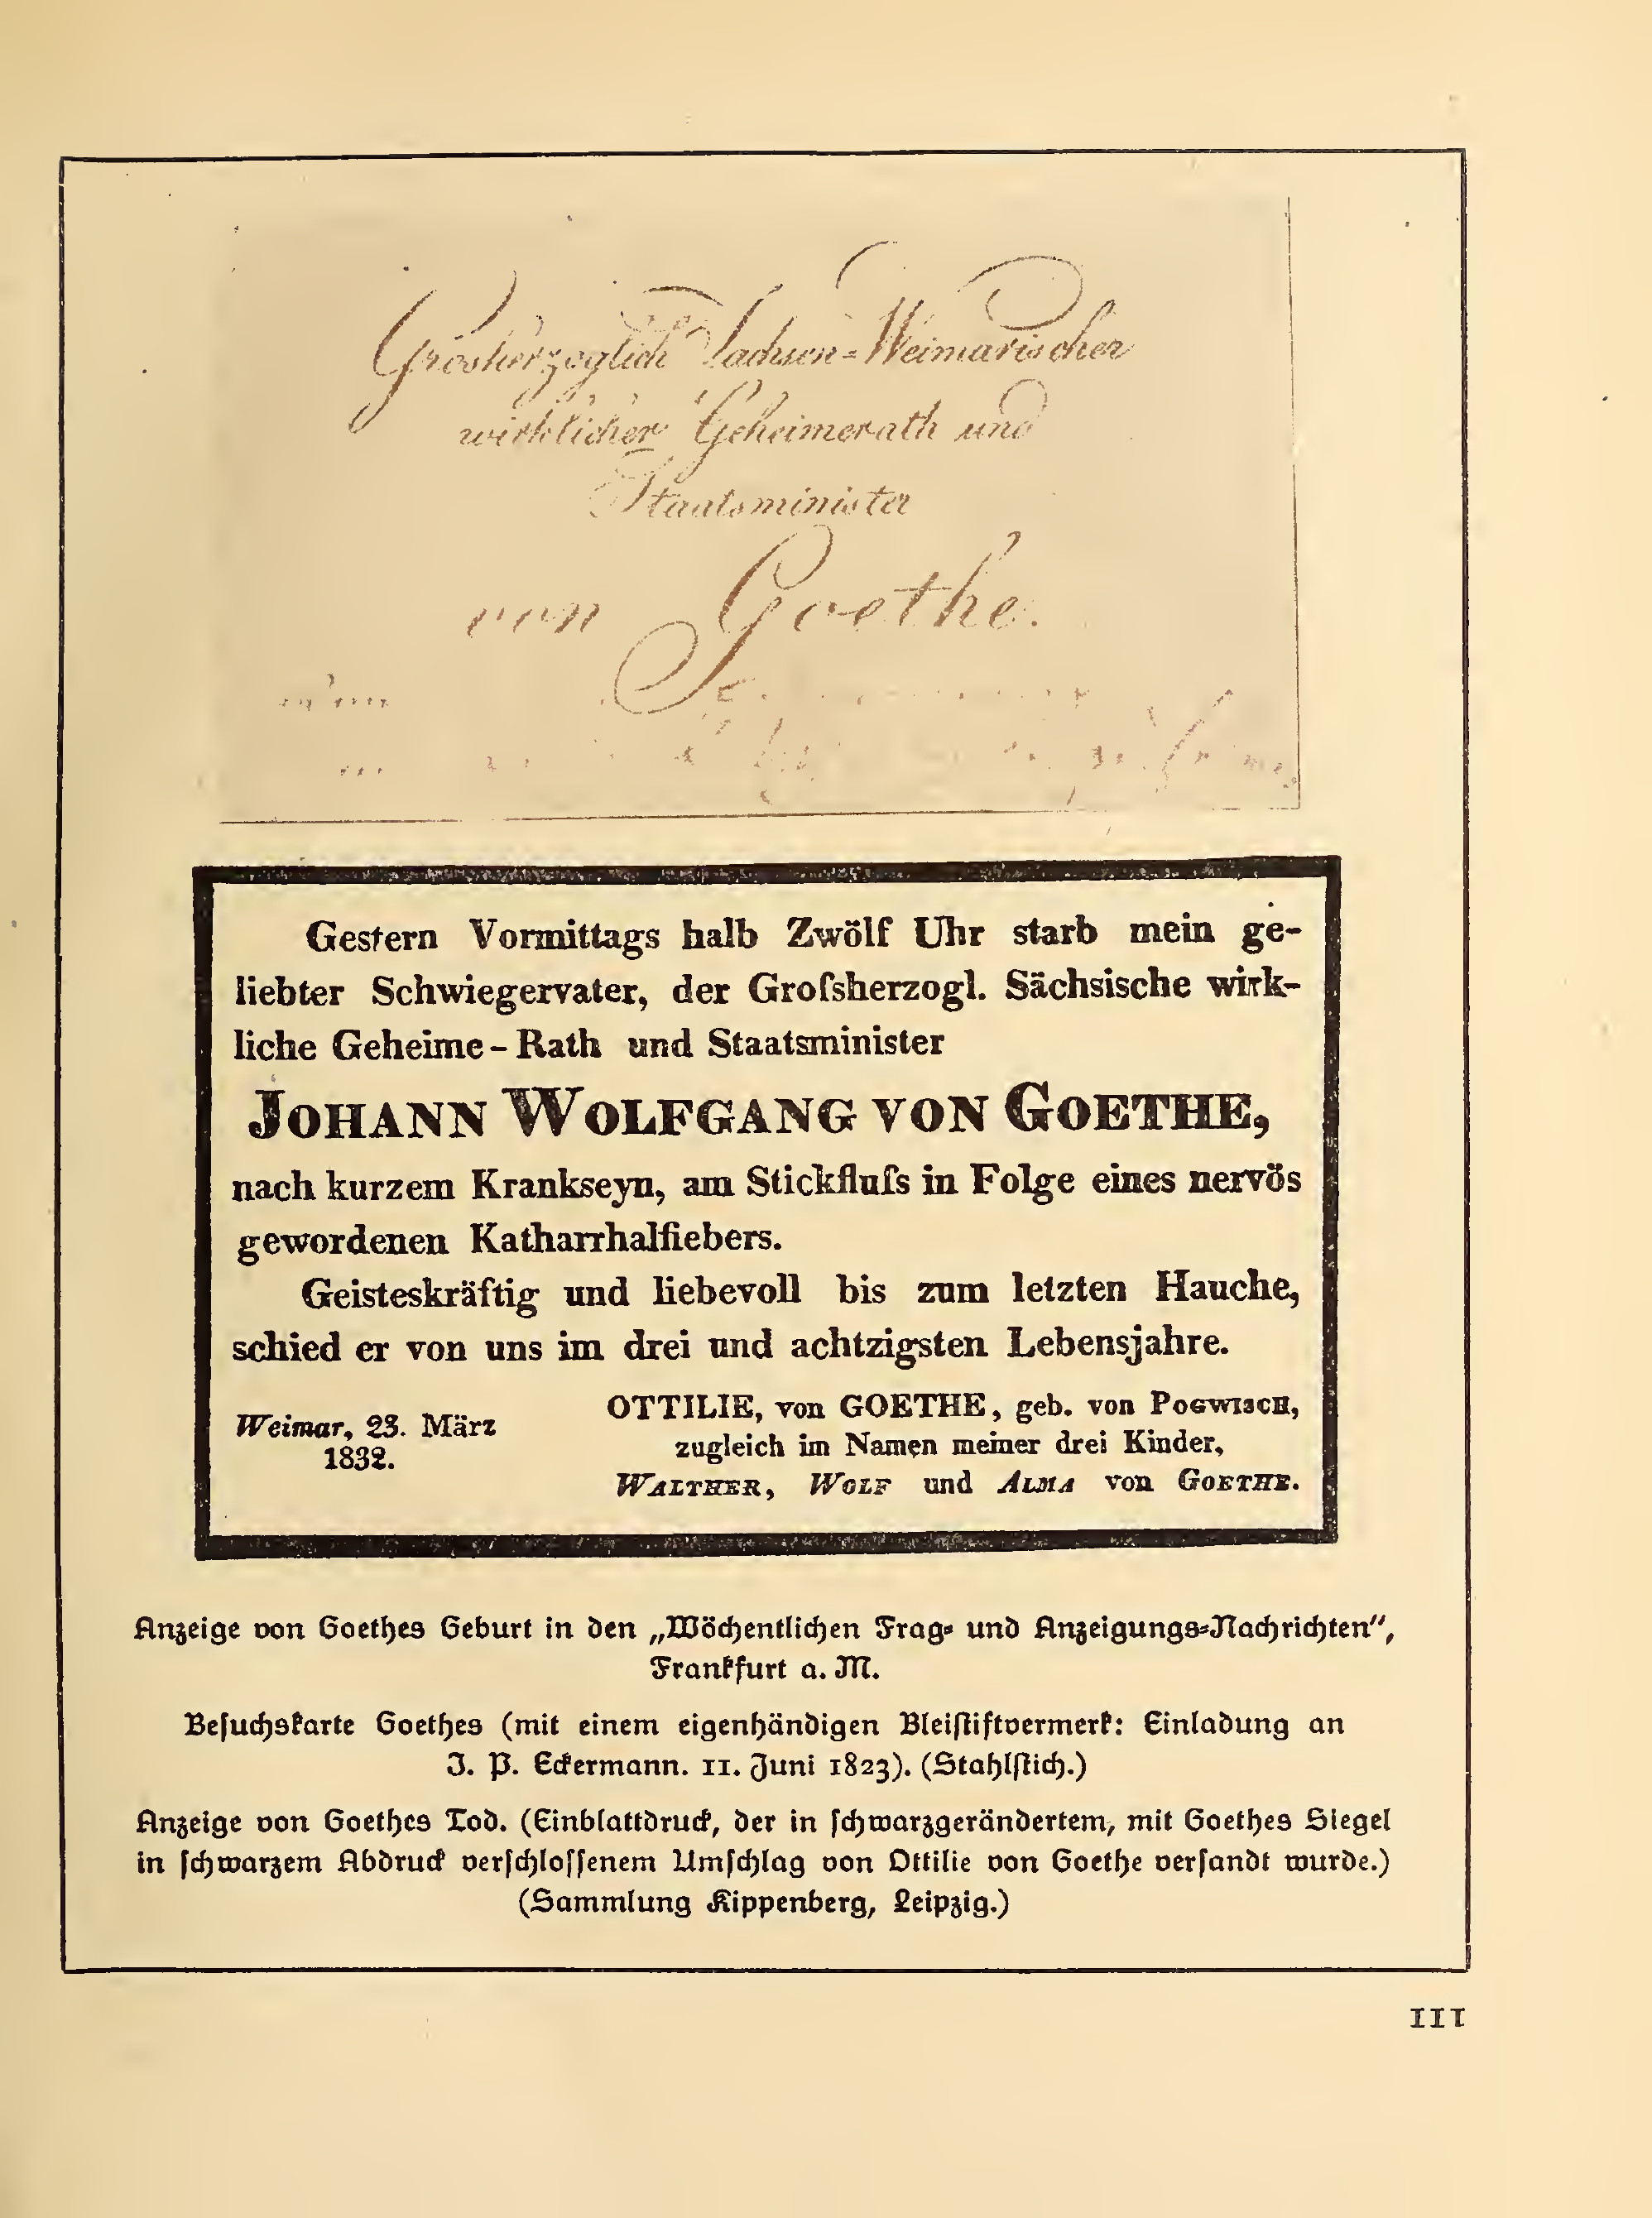 Grosherzoglich Sachsen=Weimarischer
wirklicher Geheimerath und
Staatsminister
von Goethe.
Gestern Vormittags halb Zwölf Uhr starb mein ge-
liebter Schwiegervater, der Groſsherzogl. Sächsische wirk-
liche Geheime-Rath und Staatsminister
JOHANN WOLFGANG VON GOETHE,
nach kurzem Krankseyn, am Stickfluſs in Folge eines nervös
gewordenen Katharrhalfiebers.
Geisteskräftig und liebevoll bis zum letzten Hauche,
schied er von uns im drei und achtzigsten Lebensjahre.
Weimar, 23. März
1832.
OTTILIE, von GOETHE, geb. von POGWISCH,
zugleich im Namen meiner drei Kinder,
WALTHER, WOLF und ALMA von GOETHE.
Anzeige von Goethes Geburt in den „Wöchentlichen Frag- und Anzeigungs-Nachrichten",
Frankfurt a. M.
Beſuchskarte Goethes (mit einem eigenhändigen Bleiſtiftvermerk: Einladung an
J. P. Eckermann. 11. Juni 1823). (Stahlſtich.)
Anzeige von Goethes Tod. (Einblattdruck, der in ſchwarzgerändertem, mit Goethes Siegel
in ſchwarzem Abdruck verſchloſſenem Umſchlag von Ottilie von Goethe verſandt wurde.)
(Sammlung Kippenberg, Leipzig.)
III